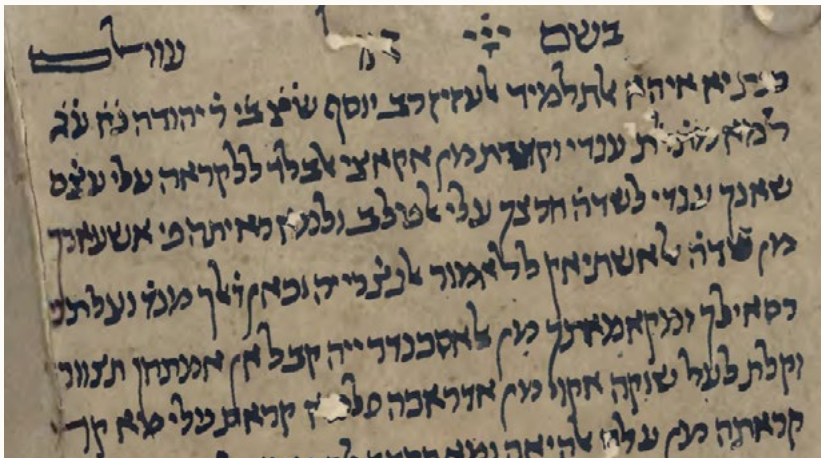 בשם ייי אל עולם
איהא אלתלמיד אלעזיז רב יוסף ש̇צ̇ ב̇ ר̇ יהודה נ̇ע̇
למא מת̇לת ענדי וקצדת מן אקאצי אלבלאד ללקראה עלי עט̇ם
שאנך ענדי לשדה̈ חרצך עלי אלטלב ולמא ראיתה פי אשעארך
מן שדה̈ אלאשתיאק ללאמור אלנט̇רייה וכאן ד̇לך מנד̇ וצלתני
רסאילך ומקאמאתך מן אלאסכנדרייה קבל אן אמתחן תצוור
וקלת לעל שוקה אקוי מן אדראכה פלמא קראת עלי מא קד
קראתה מן עלם אלהיאה ומא